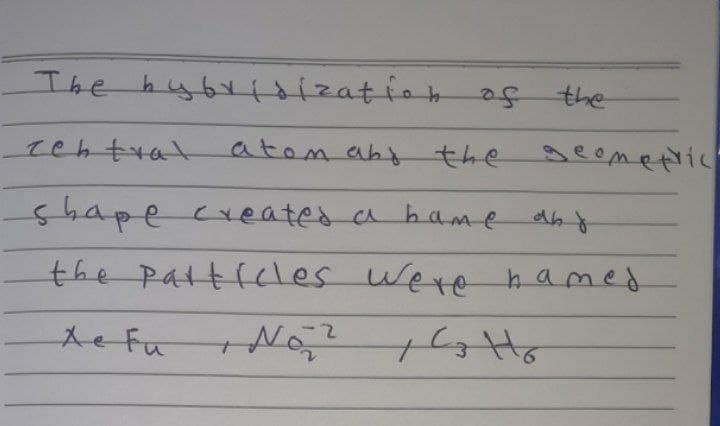 The hybridization of the
central atom and the geometric
shape created a name and
the particles were named
XeF4 , NO2^-2 , C3H6